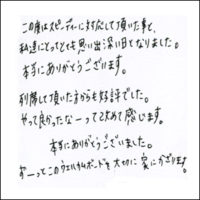 この度はスピーディーに対応して頂いた事と、
私達にとってとても思い出深い日となりました。
本当にありがとうございます。
列席して頂いた方からも好評でした。
やって良かったなーって改めて感じます。
本当にありがとうございました。
ずーっとこのウェルカムボードを大切に家にかざります。